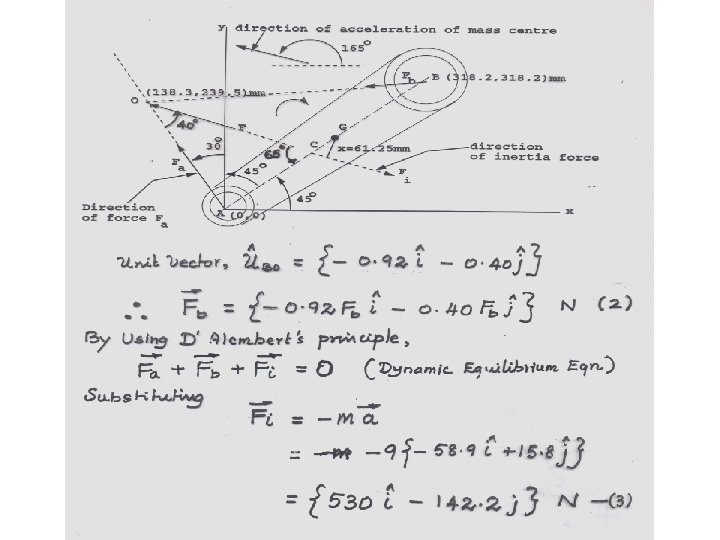 y direction of acceleration of mass centre
165°
F_b B (318.2,318.2)mm
O (138.3,239.5)mm
40°
F
30°
G
C x=61.25mm
65°
direction
of inertia force
F_a
45°
F_i
Direction
of force F_a
45°
A (0,0)
x
Unit Vector, û_BO = {- 0.92 î - 0.40 ĵ}
∴ F⃗_b = {- 0.92 F_b î - 0.40 F_b ĵ} N (2)
By Using D' Alembert's principle,
F⃗_a + F⃗_b + F⃗_i = 0 (Dynamic Equilibrium Eqn.)
Substituting F⃗_i = - m a⃗
= - 9 {- 58.9 î + 15.8 ĵ}
= {530 î - 142.2 ĵ} N —(3)